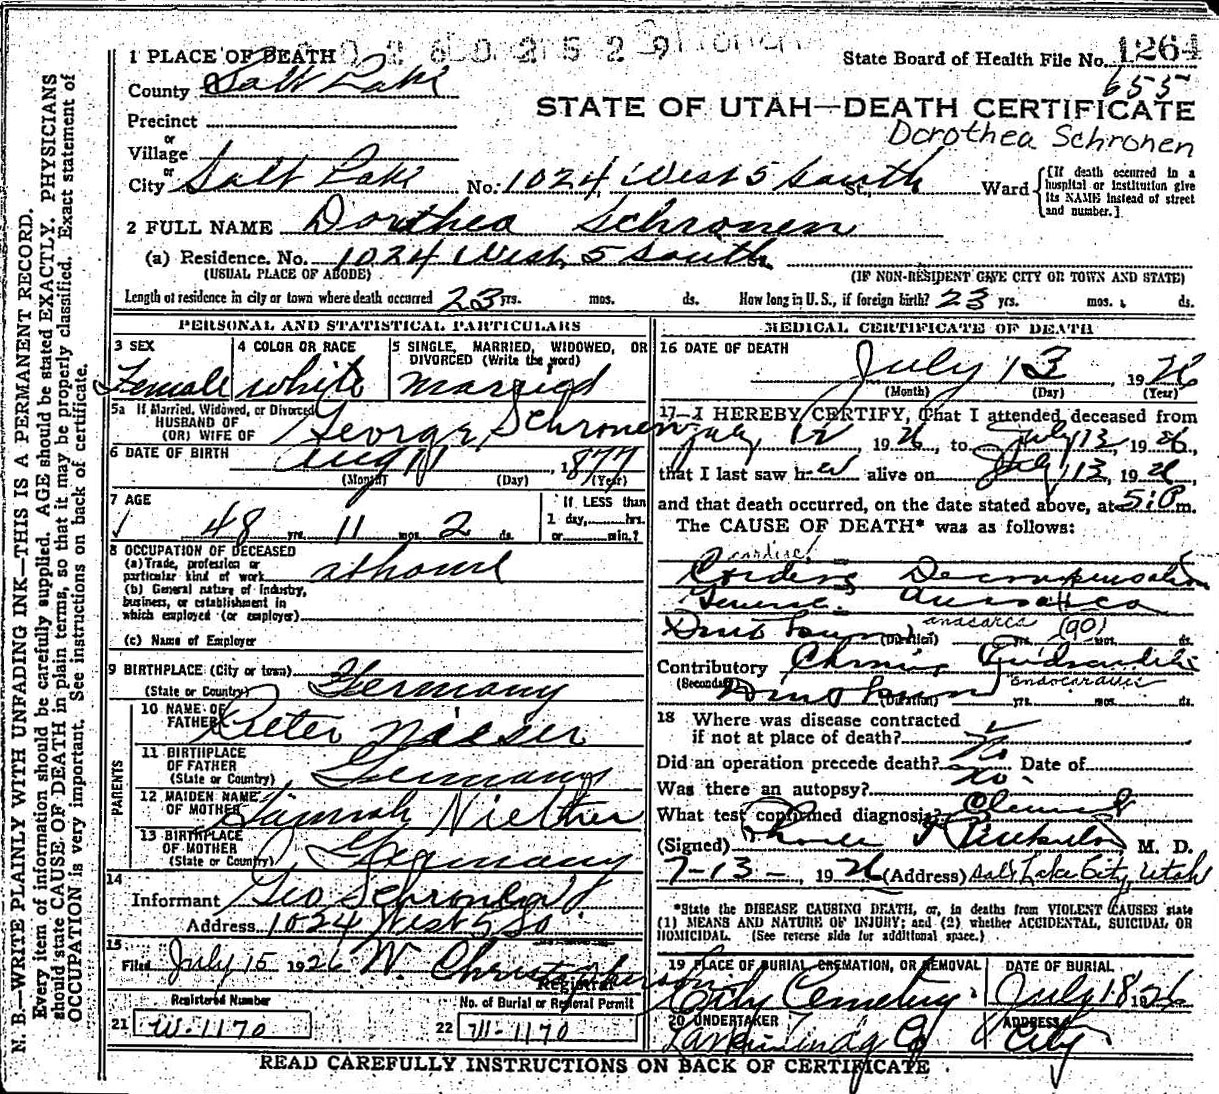 1 PLACE OF DEATH
State Board of Health File No. 1264
655
County Salt Lake
STATE OF UTAH—DEATH CERTIFICATE
Dorothea Schronen
Precinct
or
Village
or
City Salt Lake No. 1024 West 5 South St., Ward
[If death occurred in a hospital or institution give its NAME instead of street and number.]
2 FULL NAME Dorthea Schronen
(a) Residence. No. 1024 West 5 South
(USUAL PLACE OF ABODE) (IF NON-RESIDENT GIVE CITY OR TOWN AND STATE)
Length of residence in city or town where death occurred 23 yrs. mos. ds. How long in U. S., if foreign birth? 23 yrs. mos. ds.
PERSONAL AND STATISTICAL PARTICULARS
3 SEX
Female
4 COLOR OR RACE
white
5 SINGLE, MARRIED, WIDOWED, OR DIVORCED (Write the word)
married
5a If Married, Widowed, or Divorced
HUSBAND OF
(OR) WIFE OF George Schronen
6 DATE OF BIRTH Aug 11, 1877
(Month) (Day) (Year)
7 AGE
48 yrs. 11 mos. 2 ds.
If LESS than
1 day, hrs.
or min.?
8 OCCUPATION OF DECEASED
(a) Trade, profession or
particular kind of work at home
(b) General nature of Industry,
business, or establishment in
which employed (or employer)
(c) Name of Employer
9 BIRTHPLACE (City or town)
(State or Country) Germany
PARENTS
10 NAME OF
FATHER Peter
11 BIRTHPLACE
OF FATHER
(State or Country) Germany
12 MAIDEN NAME
OF MOTHER
13 BIRTHPLACE
OF MOTHER
(State or Country) Germany
14
Informant Geo Schronen
Address 1024 West 5 So
15
Filed July 15 1926 W. Christopherson
Registrar
Registered Number
21 W-1170
No. of Burial or Removal Permit
22 W-1170
MEDICAL CERTIFICATE OF DEATH
16 DATE OF DEATH
July 13, 1926
(Month) (Day) (Year)
17—I HEREBY CERTIFY, that I attended deceased from
July 12 1926, to July 13, 1926,
that I last saw her alive on July 13, 1926,
and that death occurred, on the date stated above, at 5:10 P m.
The CAUSE OF DEATH* was as follows:
cardiac
Decompensation
General Anasarca
anasarca (90)
(Duration) yrs. mos. ds.
Contributory Chronic Endocarditis
endocarditis
(Secondary) (Duration) yrs. mos. ds.
18 Where was disease contracted
if not at place of death?
Did an operation precede death? No Date of
Was there an autopsy? No
What test confirmed diagnosis? Clinical
(Signed) M. D.
7-13-, 1926 (Address) Salt Lake City, Utah
*State the DISEASE CAUSING DEATH, or, in deaths from VIOLENT CAUSES state
(1) MEANS AND NATURE OF INJURY; and (2) whether ACCIDENTAL, SUICIDAL OR
HOMICIDAL. (See reverse side for additional space.)
19 PLACE OF BURIAL, CREMATION, OR REMOVAL
City Cemetery
DATE OF BURIAL
July 18 1926
20 UNDERTAKER
Larkin Undg Co
ADDRESS
City
READ CAREFULLY INSTRUCTIONS ON BACK OF CERTIFICATE
N. B.—WRITE PLAINLY WITH UNFADING INK—THIS IS A PERMANENT RECORD.
Every item of information should be carefully supplied. AGE should be stated EXACTLY. PHYSICIANS
should state CAUSE OF DEATH in plain terms, so that it may be properly classified. Exact statement of
OCCUPATION is very important. See instructions on back of certificate.